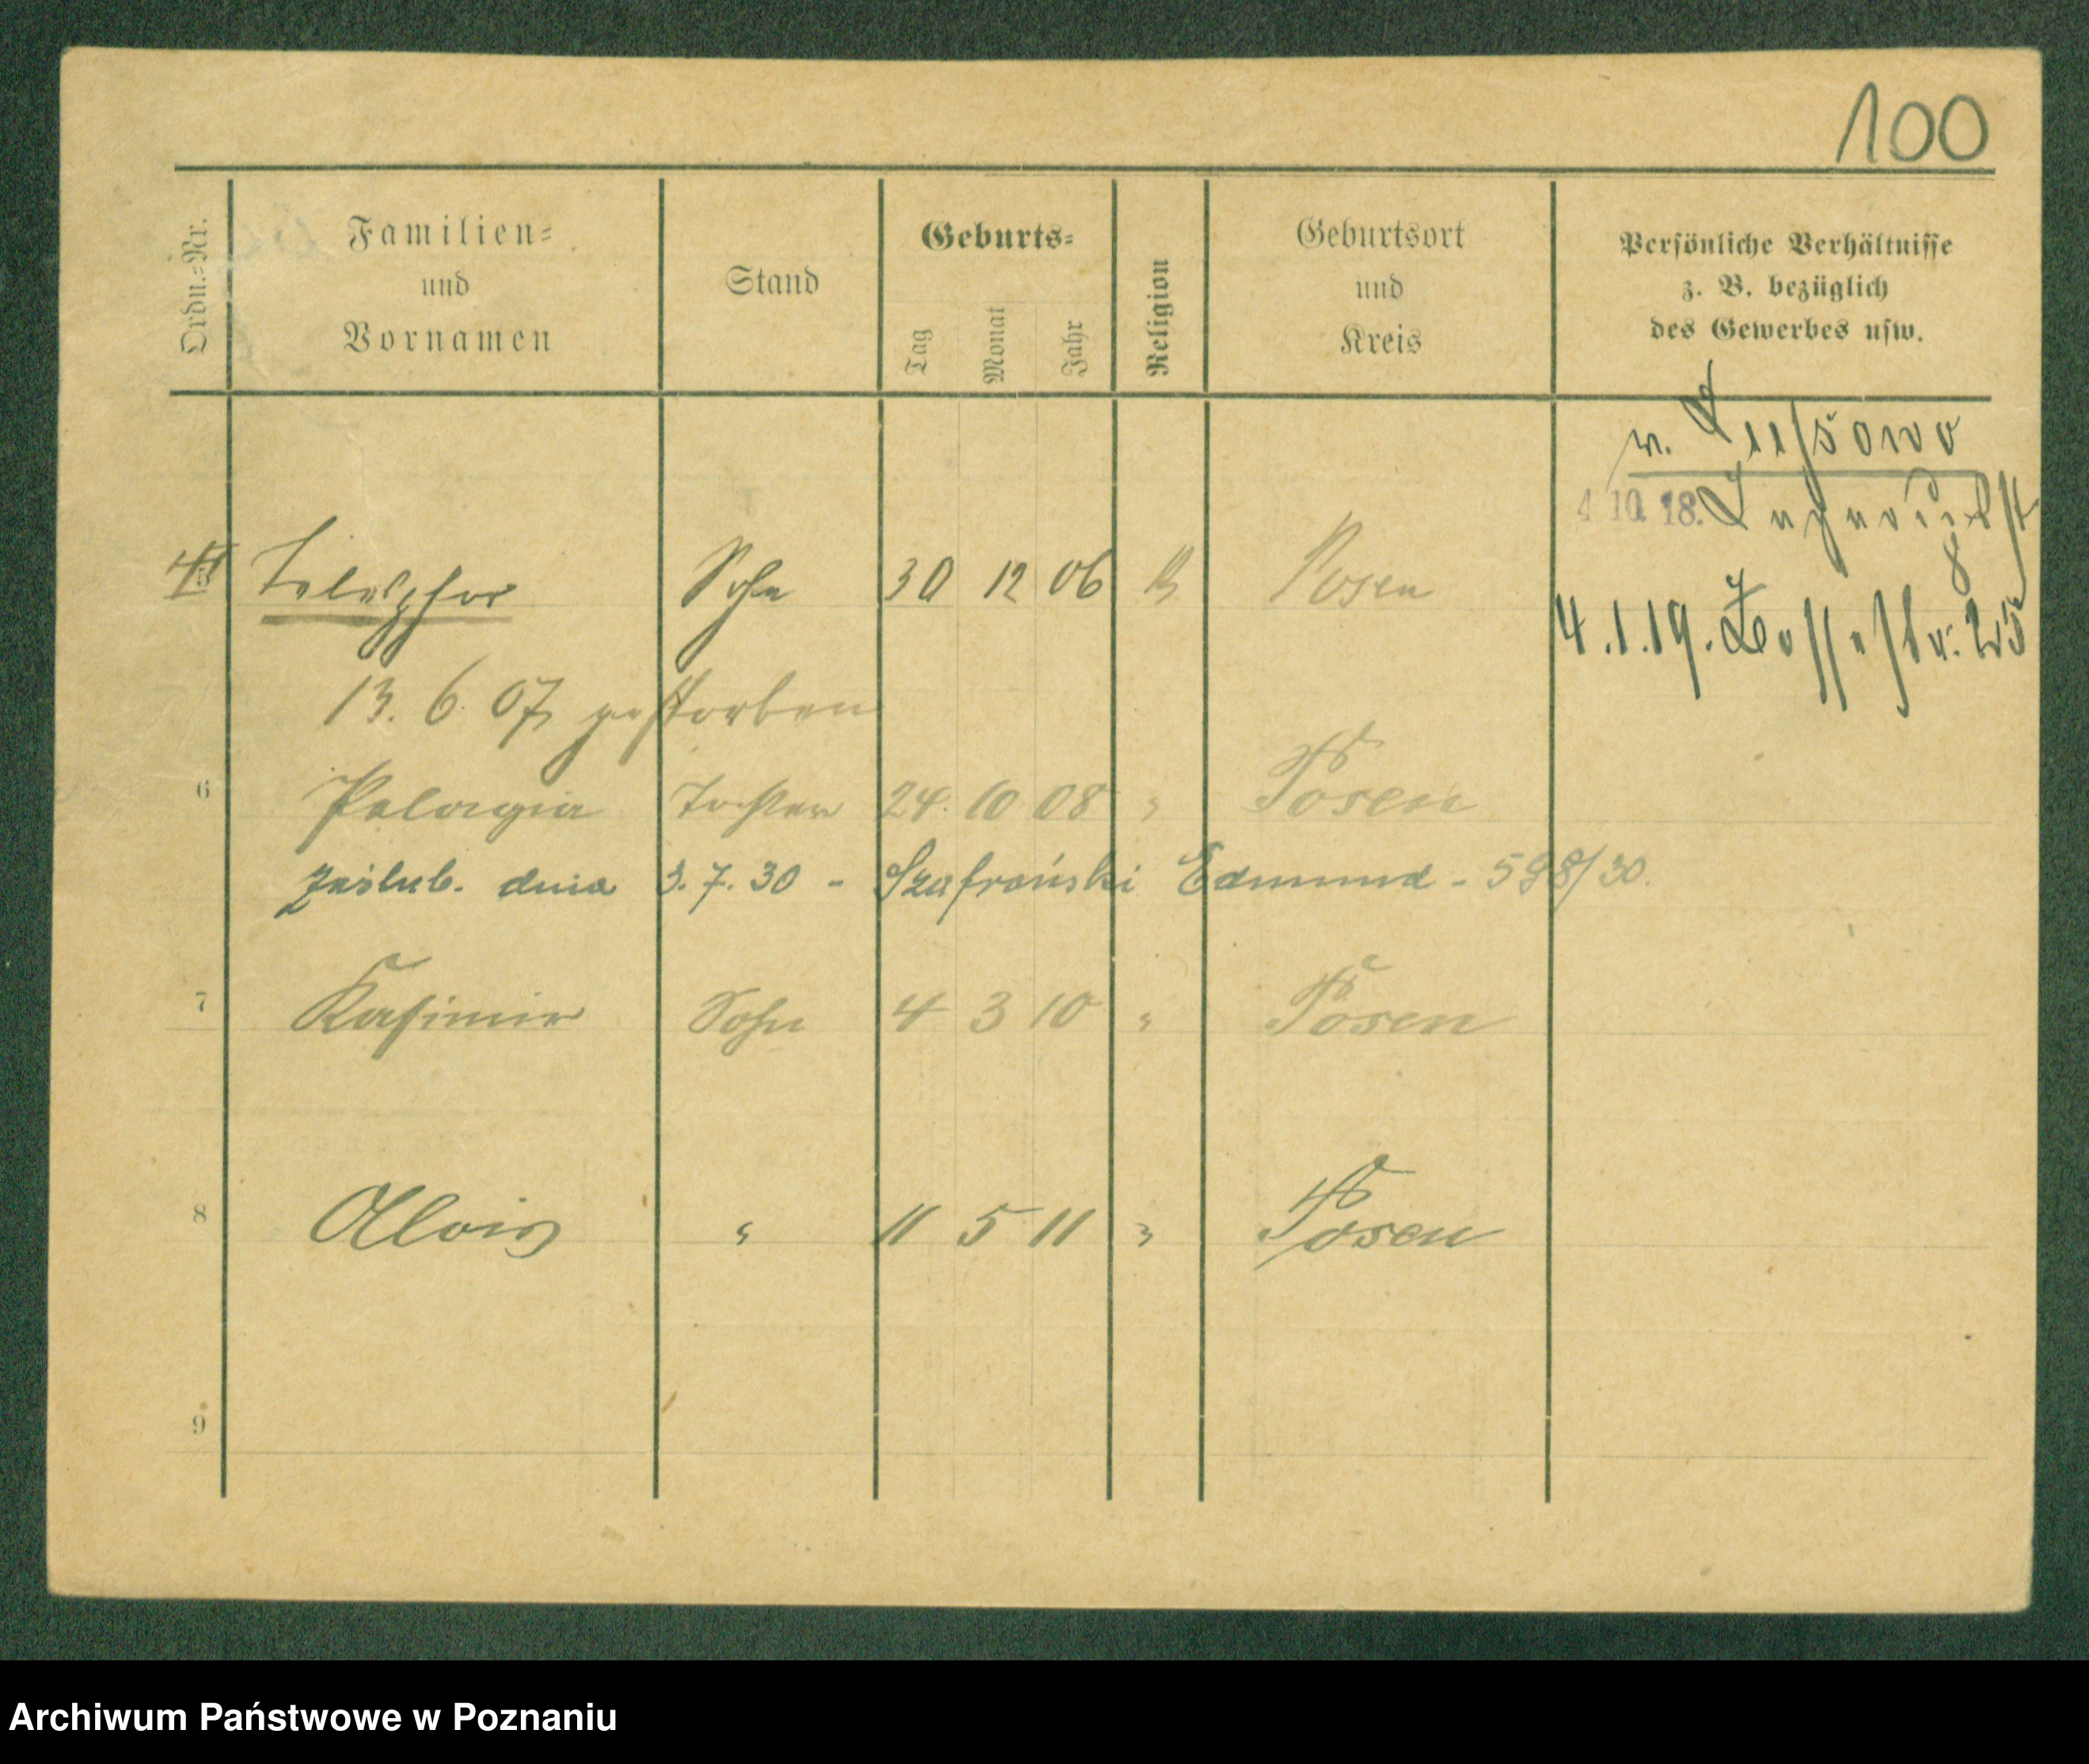 100
Ordn.-Nr.
Familien-
und
Vornamen
Stand
Geburts-
Tag Monat Jahr
Religion
Geburtsort
und
Kreis
Persönliche Verhältnisse
z. B. bezüglich
des Gewerbes usw.
n. Lussowo
4 10. 18.
4.1.19.
Sohn 30 12 06 Posen
13. 6. 07 gestorben
6 Pelagia Tochter 24. 10 08 " Posen
zaślub. dnia 3. 7. 30 - Szafrański Edmund - 598/30.
7 Kasimir Sohn 4 3 10 " Posen
8 Alois " 11 5 11 " Posen
9
Archiwum Państwowe w Poznaniu